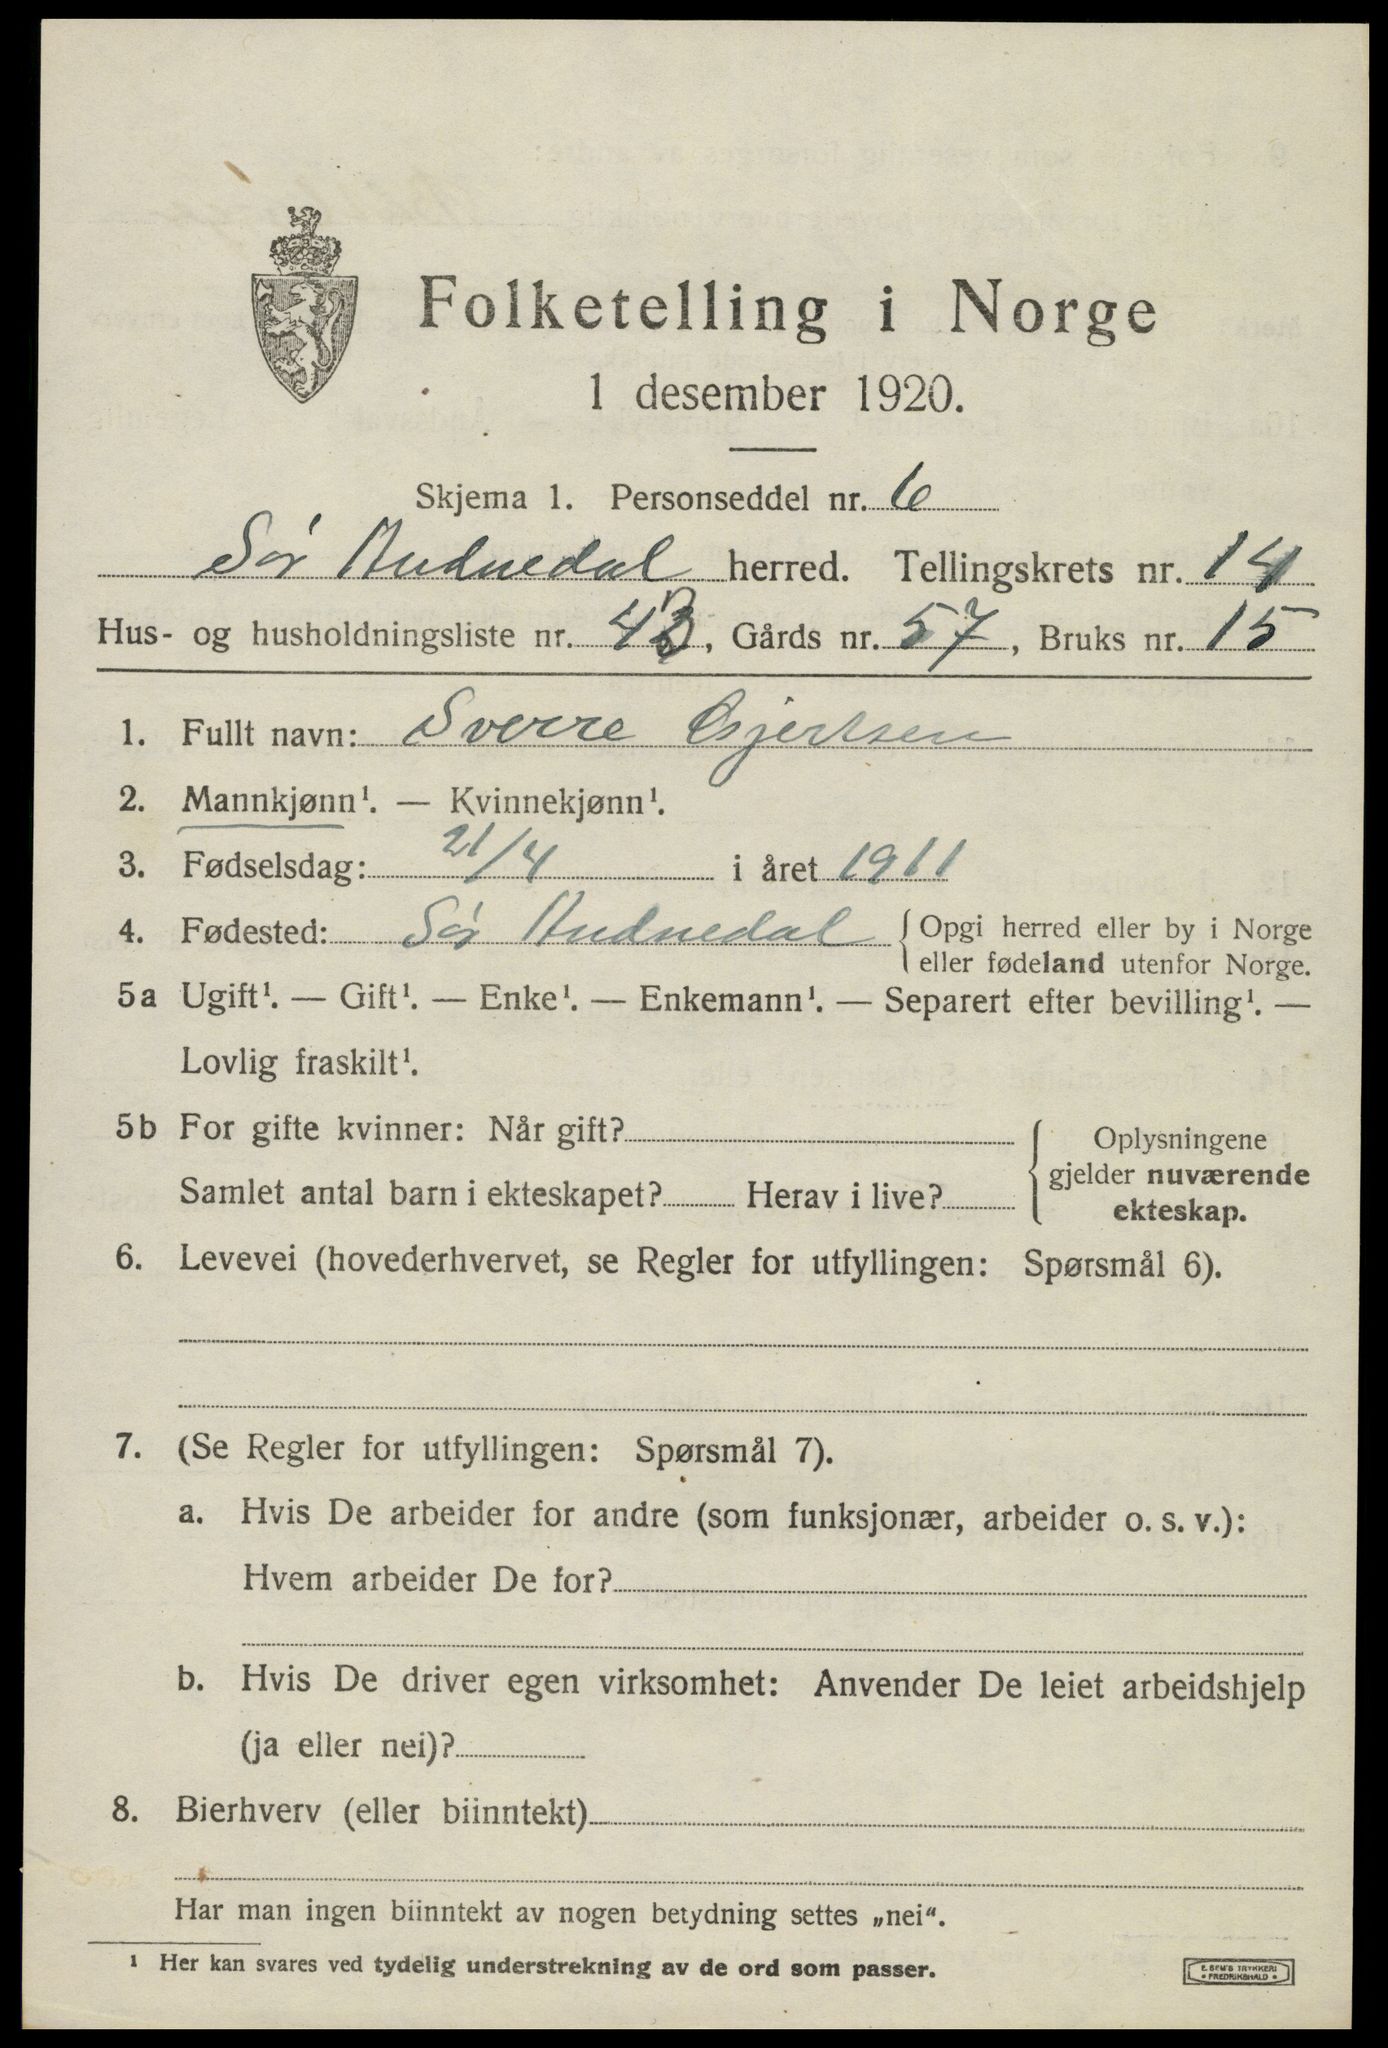 Folketelling i Norge
1 desember 1920.
Skjema 1. Personseddel nr. 6
Sør Audnedal herred. Tellingskrets nr. 14
Hus- og husholdningsliste nr. , Gårds nr. 57, Bruks nr. 15
1. Fullt navn: Sverre Gjertsen
2. Mannkjønn¹. — Kvinnekjønn¹.
3. Fødselsdag: 21/4 i året 1911
4. Fødested: Sør Audnedal { Opgi herred eller by i Norge
eller fødeland utenfor Norge.
5a Ugift¹. — Gift¹. — Enke¹. — Enkemann¹. — Separert efter bevilling¹. —
Lovlig fraskilt¹.
5b For gifte kvinner: Når gift?
Samlet antal barn i ekteskapet? Herav i live?
{ Oplysningene
gjelder nuværende
ekteskap.
6. Levevei (hovederhvervet, se Regler for utfyllingen: Spørsmål 6).
7. (Se Regler for utfyllingen: Spørsmål 7).
a. Hvis De arbeider for andre (som funksjonær, arbeider o. s. v.):
Hvem arbeider De for?
b. Hvis De driver egen virksomhet: Anvender De leiet arbeidshjelp
(ja eller nei)?
8. Bierhverv (eller biinntekt)
Har man ingen biinntekt av nogen betydning settes „nei“.
¹ Her kan svares ved tydelig understrekning av de ord som passer.
E. SEM'S TRYKKERI
• FREDRIKSHALD •